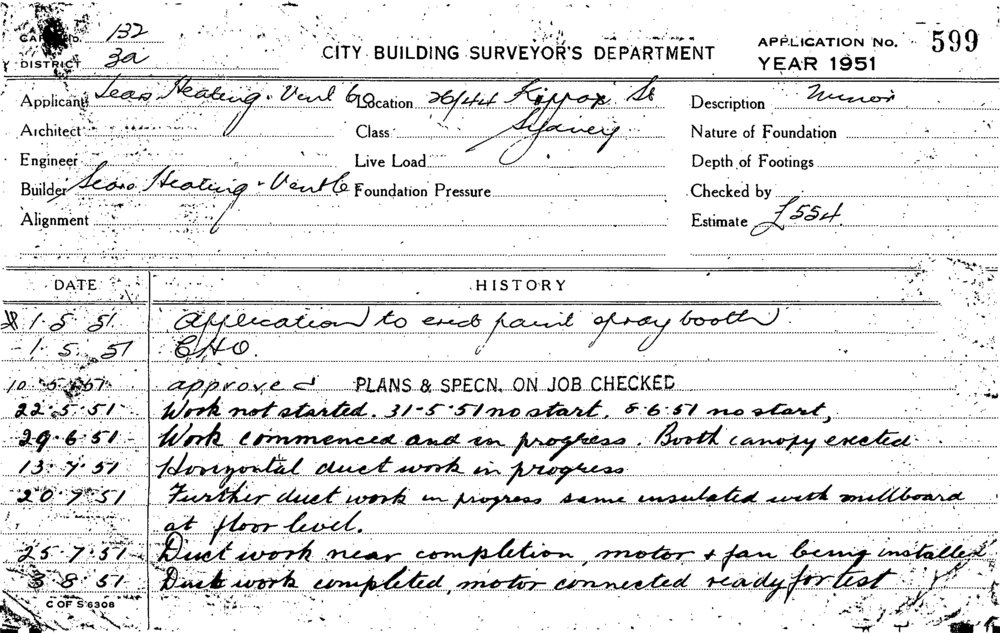 CARD NO. 132
DISTRICT 3a
CITY BUILDING SURVEYOR'S DEPARTMENT
APPLICATION No. 599
YEAR 1951
Applicant Sears Heating & Vent Co Location 26/44 Kippax St Description Minor
Architect Class Sydney Nature of Foundation
Engineer Live Load Depth of Footings
Builder Sears Heating & Vent Co Foundation Pressure Checked by
Alignment Estimate £554
DATE HISTORY
1.5.51 Application to erect paint spray booth
1.5.51 C.H.O.
10.5.51 approved PLANS & SPECN. ON JOB CHECKED
22.5.51 Work not started. 31-5-51 no start. 8.6.51 no start,
29.6.51 Work commenced and in progress. Booth canopy erected
13.7.51 Horizontal duct work in progress
20.7.51 Further duct work in progress same insulated with millboard
at floor level.
25.7.51 Duct work near completion, motor & fan being installed
3.8.51 Duct work completed, motor connected ready for test
C OF S 6308